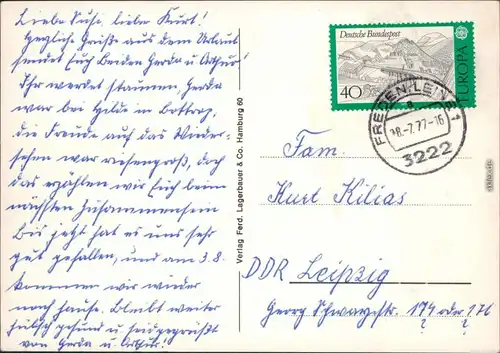 Liebe Susi, lieber Kurt!
Herzliche Grüße aus dem Urlaub
sendet Euch beiden Gerda u. Arthur!
Ihr werdet staunen, Gerda
war bei Hilde in Bottrop,
die Freude auf das Wieder-
sehen war riesengroß, doch
das erzählen wir Euch beim
nächsten Zusammensein
Bis jetzt hat es uns sehr
gut gefallen, und am 3.8.
kommen wir wieder
nach Hause. Bleibt weiter
hübsch gesund u. seid gegrüßt
von Gerda u. Arthur!
Verlag Ferd. Lagerbauer & Co. Hamburg 60
Deutsche Bundespost
40
EUROPA
FREDEN, LEINE 1
a
18.-7.77-16
3222
Fam.
Kurt Kilias
DDR Leipzig
Georg Schwarzstr. 174 oder 176
? ?